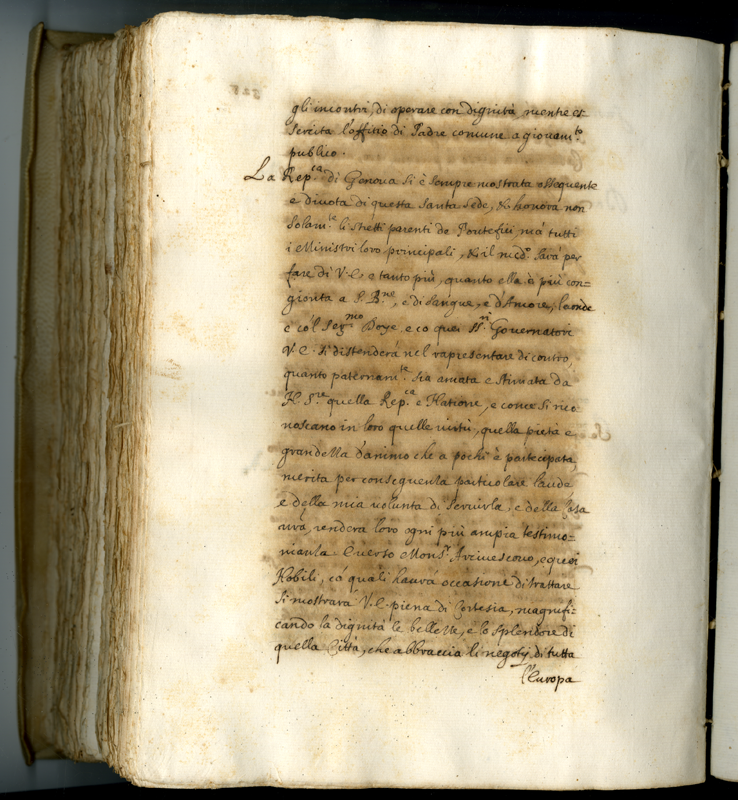 gli incontri, di operare con dignità, mentre es
sercita l'offitio di Padre comune a giovam.to
publico.
La Rep.ca di Genova si è sempre mostrata ossequente
e divota di questa Santa Sede, et honora non
solam.te li stretti parenti de Pontefici, mà tutti
i Ministri loro principali, et il med.o sarà per
fare di V.E. e tanto più, quanto ella è più con-
gionta a S. B.ne, e di sangue, e d'Amore, laonde
e cò'l Ser.mo Doge, e co quei SS.ri Governatori
V.E. si distenderà nel rapresentare di contro,
quanto paternam.te sia amata e stimata da
N. S.re quella Rep.ca e Natione, e come si rico
noscano in loro quelle virtù, quella pietà e
grandezza d'animo che a pochi è partecipata,
merita per conseguenza particolare laude
e della mia volontà di servirla, e della Casa
mia, renderà loro ogni più ampia testimo-
nianza. E verso Mons.r Arcivescovo, e quei
Nobili, có quali haurà occasione di trattare
si mostrarà V.E. piena di Cortesia, magnifi-
cando la dignità le bellezze, e lo splendore di
quella Città, che abbraccia li negotij di tutta
l'Europa